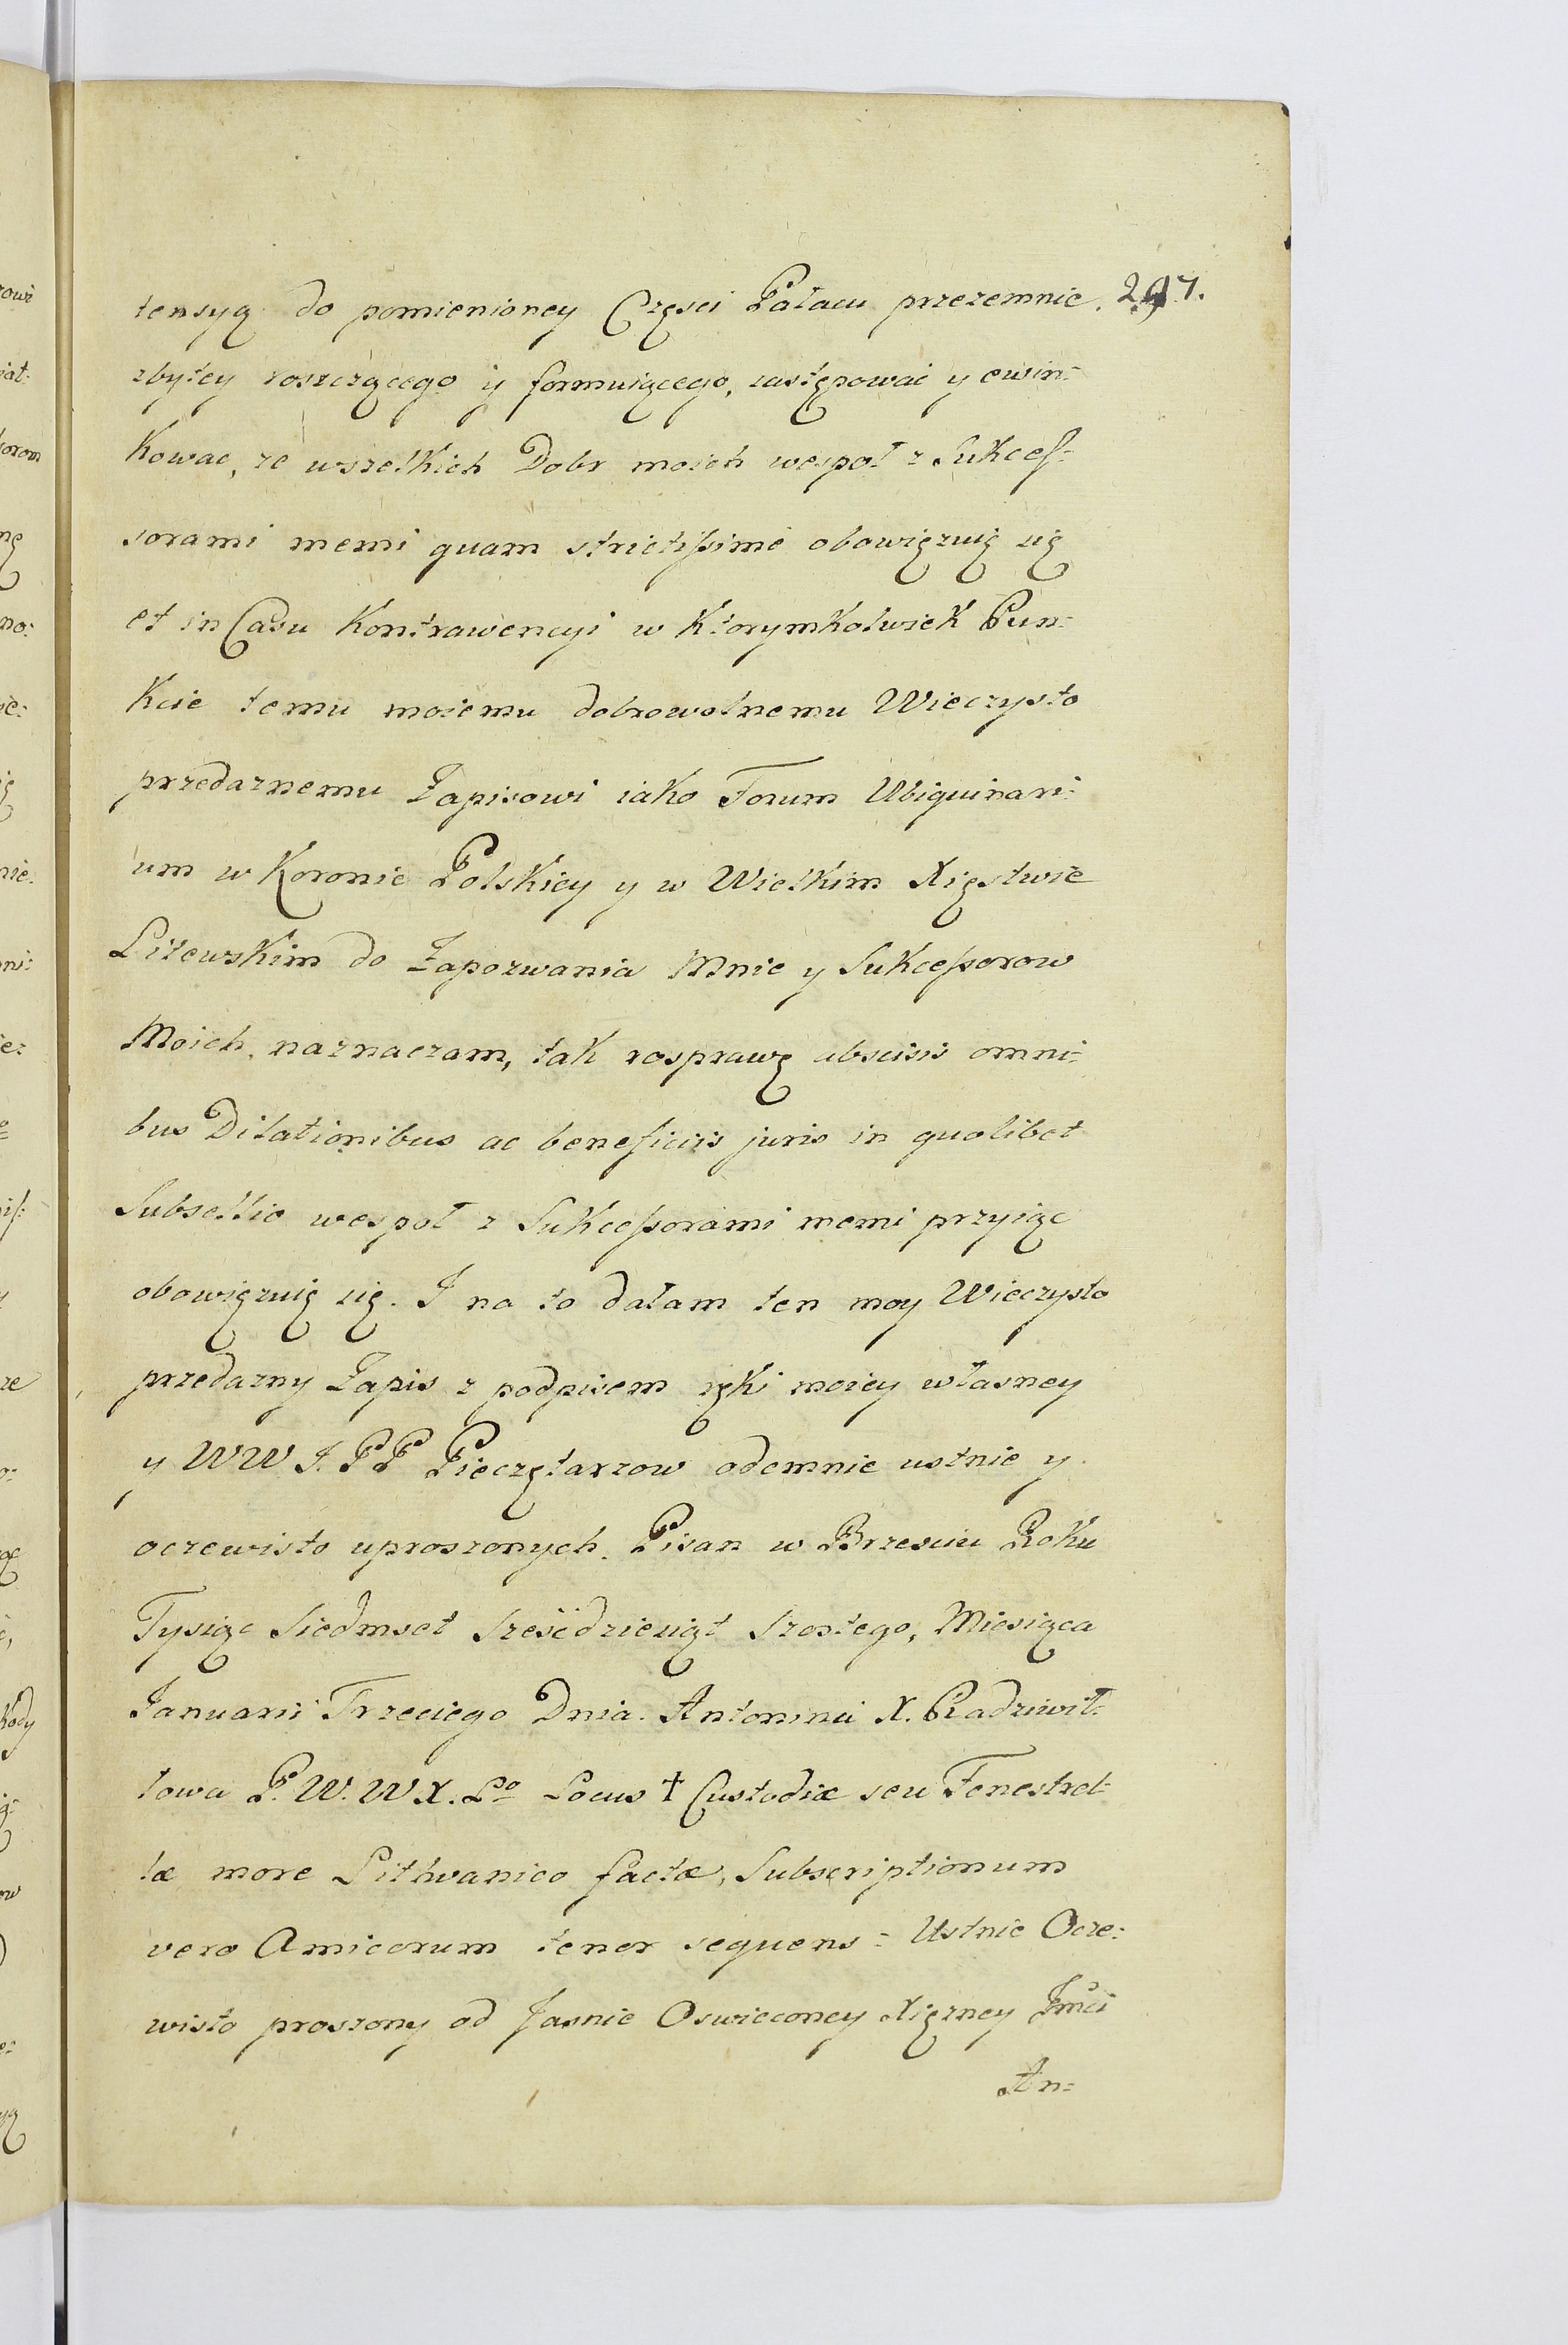 tensyą do pomienioney Części Pałacu przezemnie. 297.
zbytey roszczącego y formuiącego, zastępować y ewin=
kowac, ze wszelkich Dobr moich wespoł z Sukces=
sorami memi quam strictissime obowięzuię się
et in Casu Kontrawencyi w Ktorymkolwiek Pun=
kcie temu moiemu dobrowolnemu Wieczysto
przedaznemu Zapisowi iako Forum Ubiquinari=
um w Koronie Polskiey y w Wielkim Xięstwie
Litewskim do Zapozwania Mnie y Sukcessorow
Moich, naznaczam, tak rosprawę abscisis omni=
bus Dilationibus ac beneficiis juris in quolibet
Subsellio wespoł z Sukcessorami memi przyiąc
obowięzuię się. I na to dałam ten moy Wieczysto
przedazny Zapis z podpisem ręki moiey własney
y WW I. PP Pieczętarzow odemnie ustnie y
oczewisto uproszonych. Pisan w Brzesciu Roku
Tysiąc Siedmset Sześćdziesiąt Szostego, Miesiąca
Januarii Trzeciego Dnia. Antonina X. Radziwił=
łowa P. W. W. X. Lo Locus † Custodiæ seu Fenestrel=
læ more Lithvanico factæ, Subscriptionum
vero Amicorum tenor sequens = Ustnie Ocze=
wisto proszony od Jasnie Oswieconey Xiężney Jmci
An=
rowi
iat=
sorom
nę
no=
ie=
nie=
ni=
ie=
ze
o=
ow